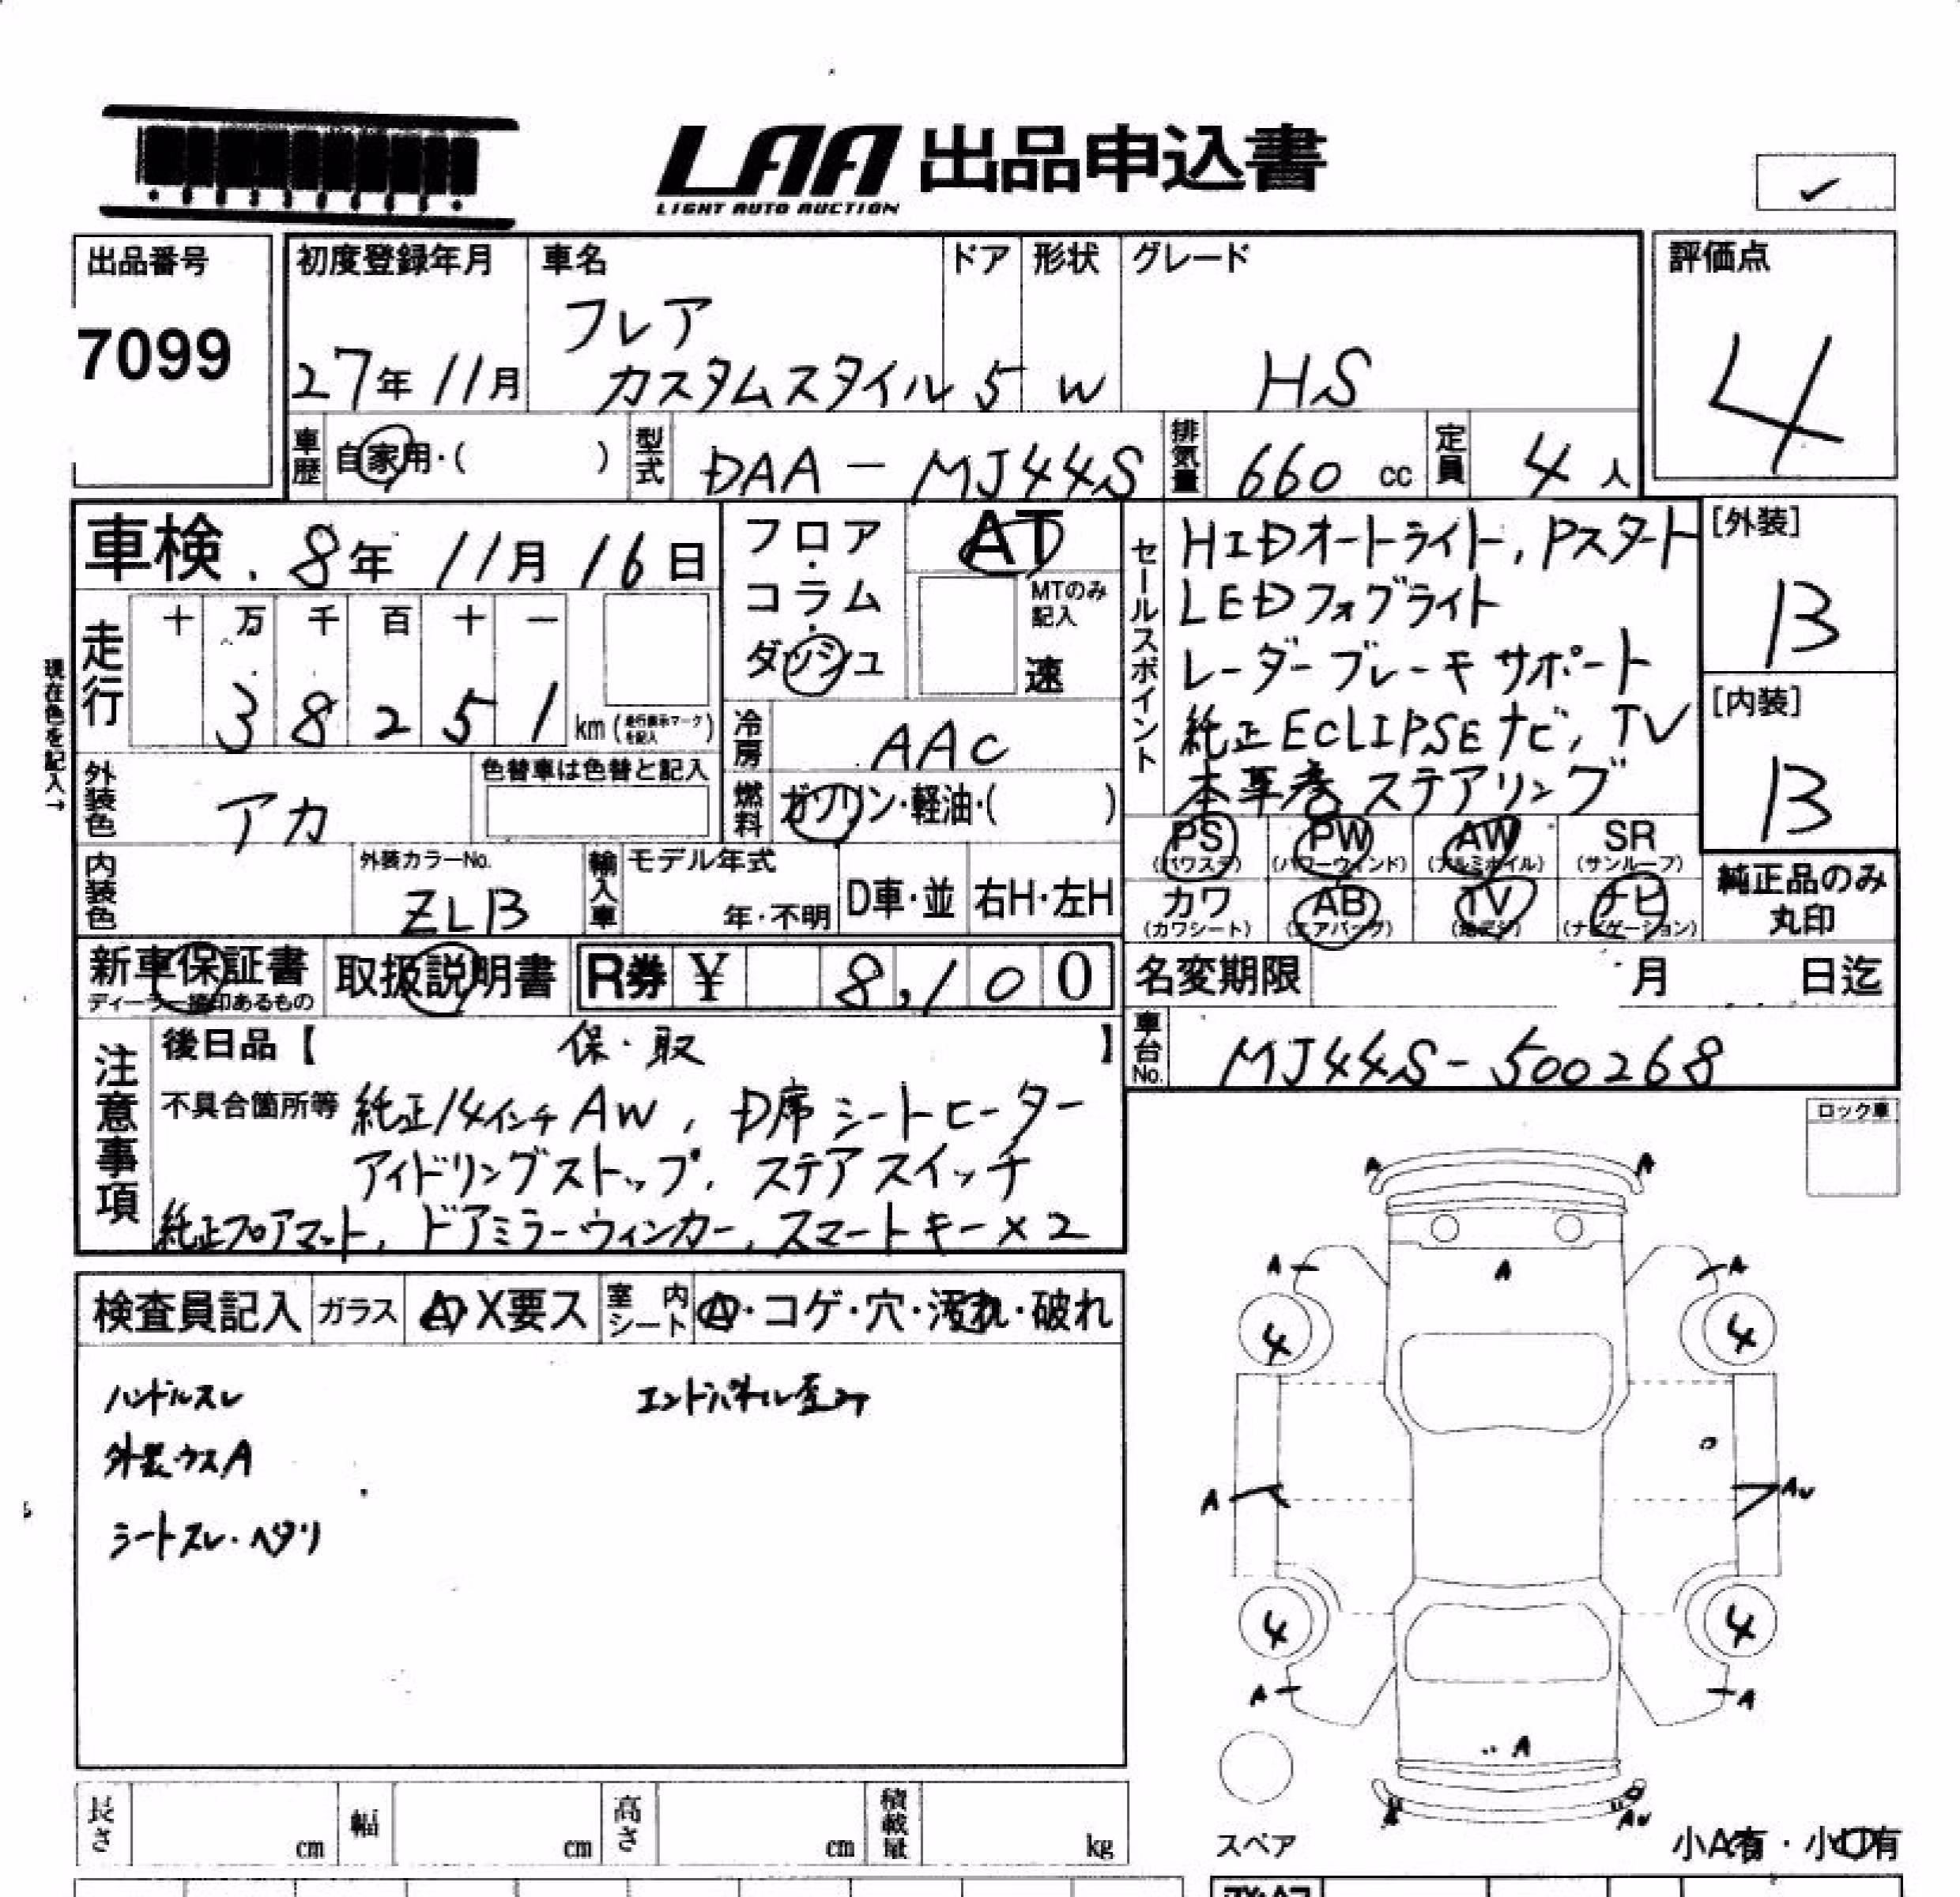 LAA 出品申込書
LIGHT AUTO AUCTION
出品番号
7099
初度登録年月
27年 11月
車名
フレア
カスタムスタイル
ドア
5
形状
W
グレード
HS
評価点
4
車歴 自家用・( )
型式 DAA-MJ44S
排気量 660 cc
定員 4人
車検 8年 11月 16日
現在色を記入→
走行
十 万 千 百 十 一
3 8 2 5 1 km (走行表示マークを記入)
外装色 アカ
色替車は色替と記入
内装色
外装カラーNo.
ZLB
フロア・コラム・ダッシュ
AT
MTのみ記入
速
冷房 AAC
燃料 ガソリン・軽油・( )
輸入車 モデル年式
年・不明 D車・並 右H・左H
セールスポイント
HIDオートライト, Pスタート
LEDフォグライト
レーダーブレーキサポート
純正ECLIPSEナビ, TV
本革巻ステアリング
[外装]
B
[内装]
B
PS (パワステ) PW (パワーウィンド) AW (アルミホイル) SR (サンルーフ)
カワ (カワシート) AB (エアバッグ) TV ナビ (ナビゲーション)
純正品のみ
丸印
新車保証書
ディーラー捺印あるもの
取扱説明書
R券 ¥ 8,100
名変期限 月 日迄
車台No. MJ44S-500268
注意事項
後日品【 保・取 】
不具合箇所等 純正14インチAW, D席シートヒーター
アイドリングストップ, ステアスイッチ
純正フロアマット, ドアミラーウィンカー, スマートキー×2
ロック車
検査員記入 ガラス A・X要ス 室内シート A・コゲ・穴・汚れ・破れ
ハンドルスレ エンドパネル歪み
外装ウスA
シートスレ・ヘタリ
A A
A A A
4 4
A AU
4 4
A A
A
AU
スペア
小A有・小U有
長さ cm 幅 cm 高さ cm 積載量 kg